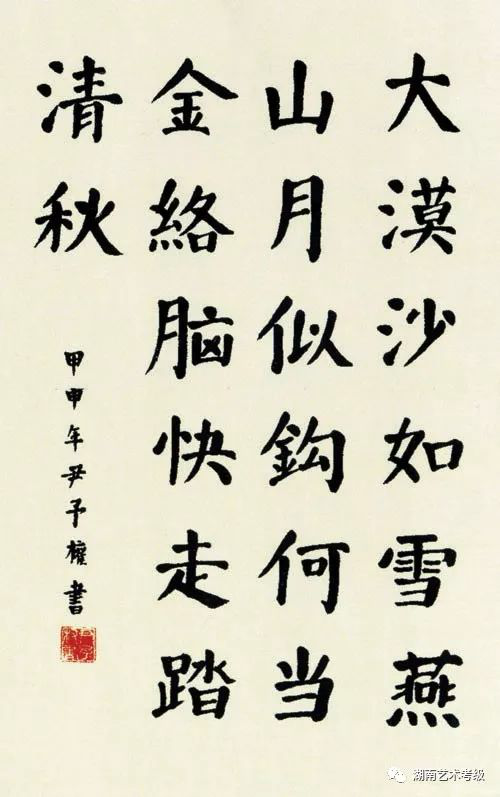 大漠沙如雪燕
山月似鈎何当
金絡脑快走踏
清秋
甲申年尹予权書
湖南艺术考级